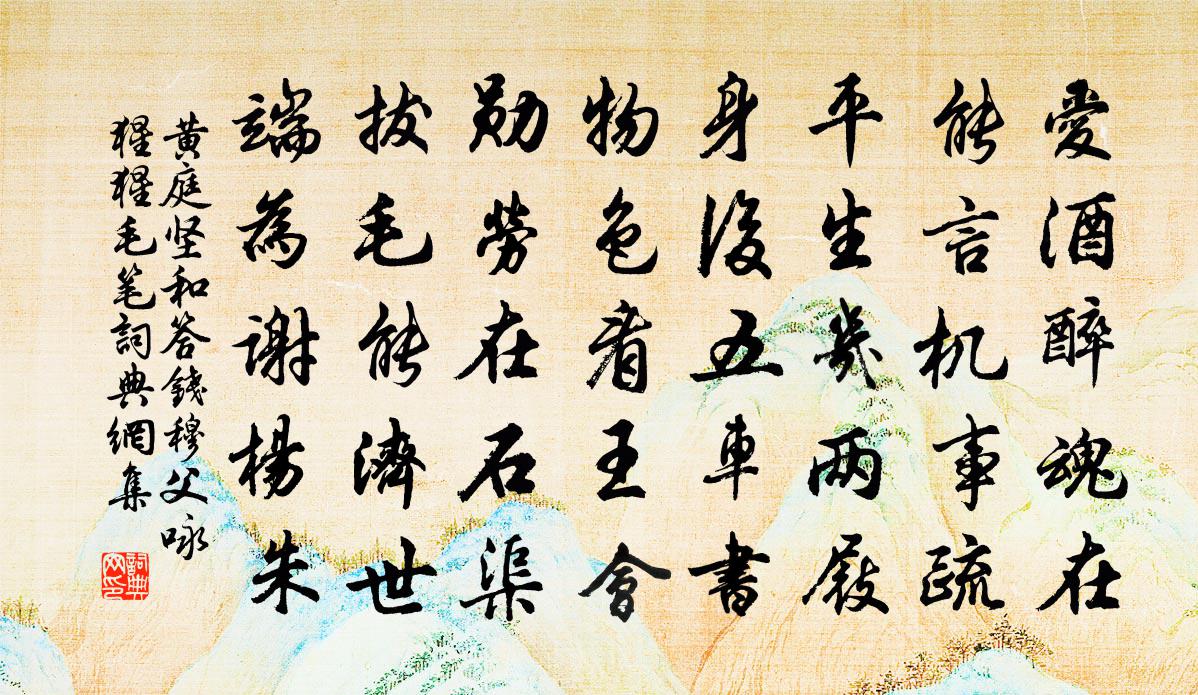 愛酒醉魂在
能言机事疏
平生幾两屐
身後五車書
物色看王會
勋勞在石渠
拔毛能濟世
端為謝楊朱
黄庭坚和答錢穆父咏
猩猩毛笔詞典網集
詞典
网印